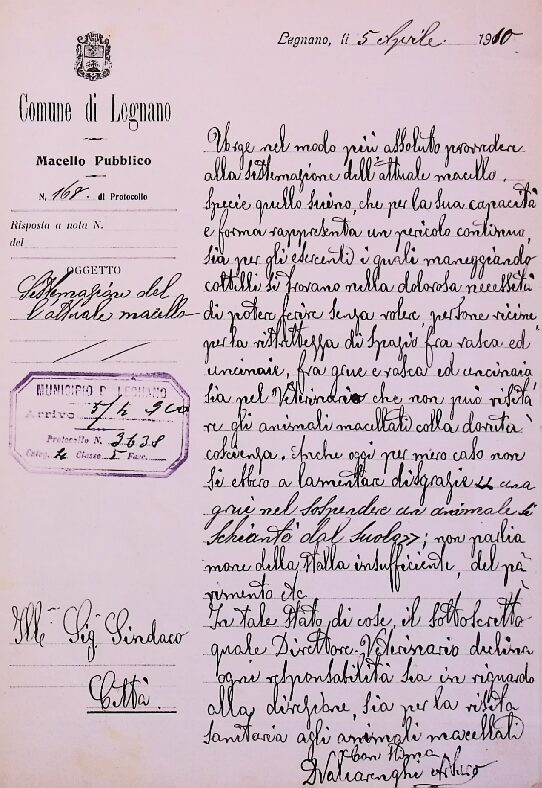 Legnano, li 5 Aprile 1910
Comune di Legnano
Macello Pubblico
N. 168. di Protocollo
Risposta a nota N.
del
OGGETTO
Sistemazione del
l'attuale macello
MUNICIPIO DI LEGNANO
Arrivo 5/4 910
Protocollo N. 3638
Categ. Classe Fasc.
Ill.mo Sig. Sindaco
Città.
Urge nel modo più assoluto provvedere
alla sistemazione dell'attuale macello.
Specie quello suino, che per la sua capacità
e forma rappresenta un pericolo continuo,
sia per gli esercenti i quali maneggiando
coltelli si trovano nella dolorosa necessità
di potere ferire senza volere, persone vicine
per la ristrettezza di spazio, fra vasca ed
uncinaie, fra grue e vasca ed uncinaia
sia pel Veterinario che non può visita
re gli animali macellati colla dovuta
coscienza. Anche oggi per mero caso non
si ebbero a lamentare disgrazie « una
grue nel sospendere un animale si
schiantò dal suolo»; non parlia
mone della stalla insufficiente, del pa
vimento etc.
In tale stato di cose, il sottoscritto
quale Direttore-Veterinario declina
ogni responsabilità sia in riguardo
alla direzione, sia per la visita
sanitaria agli animali macellati
Con stima